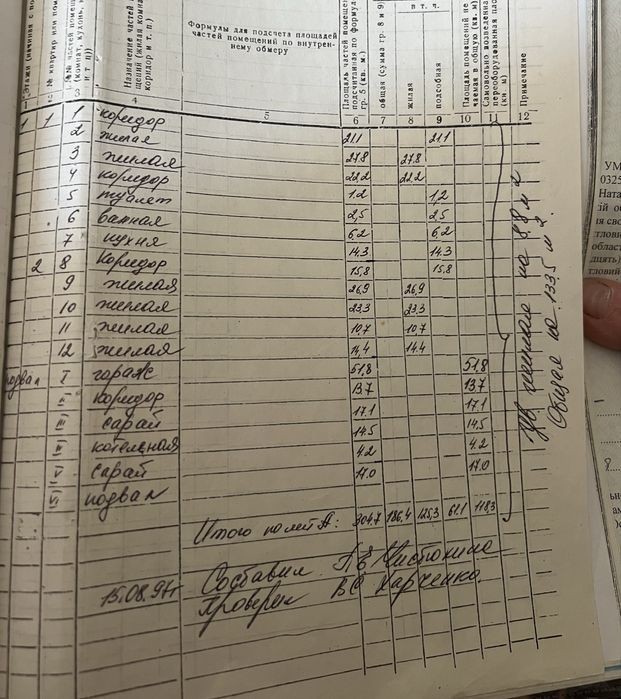 Этажи (начиная с по
№ квартир или пом
№№ частей помещ
(комнат, кухонь, к
и т. п.)
Назначение частей
щения (жилая комна
коридор и т. п.)
Формулы для подсчета площадей
частей помещений по внутрен-
нему обмеру
Площадь частей помещен
подсчитанная по формул
гр. 5 (кв. м)
общая (сумма гр. 8 и 9)
в т. ч.
жилая
подсобная
Площадь помещений не
чаемая в общую (кв. м)
Самовольно возведенна
переоборудованная пло
(кв. м)
Примечание
3 4 5 6 7 8 9 10 11 12
1 1 1 коридор 21.1 21.1
2 жилая 27.8 27.8
3 жилая 22.2 22.2
4 коридор 1.2 1.2
5 туалет 2.5 2.5
6 ванная 6.2 6.2
7 кухня 14.3 14.3
2 8 Коридор 15.8 15.8
9 жилая 26.9 26.9
10 жилая 23.3 23.3
11 жилая 10.7 10.7
12 жилая 14.4 14.4
подвал I гараж 51,8 51,8
II коридор 13.7 13.7
III сарай 17.1 17.1
IV котельная 14.5 14.5
V сарай 4.2 4.2
VI подвал 17.0 17.0
Итого по лит А: 304.7 186.4 125,3 61.1 118.3
15.08.97г Составил
Проверил Харченко
на 8.8 м2
Общего на 133.5 м2.
УМ
0325
Ната